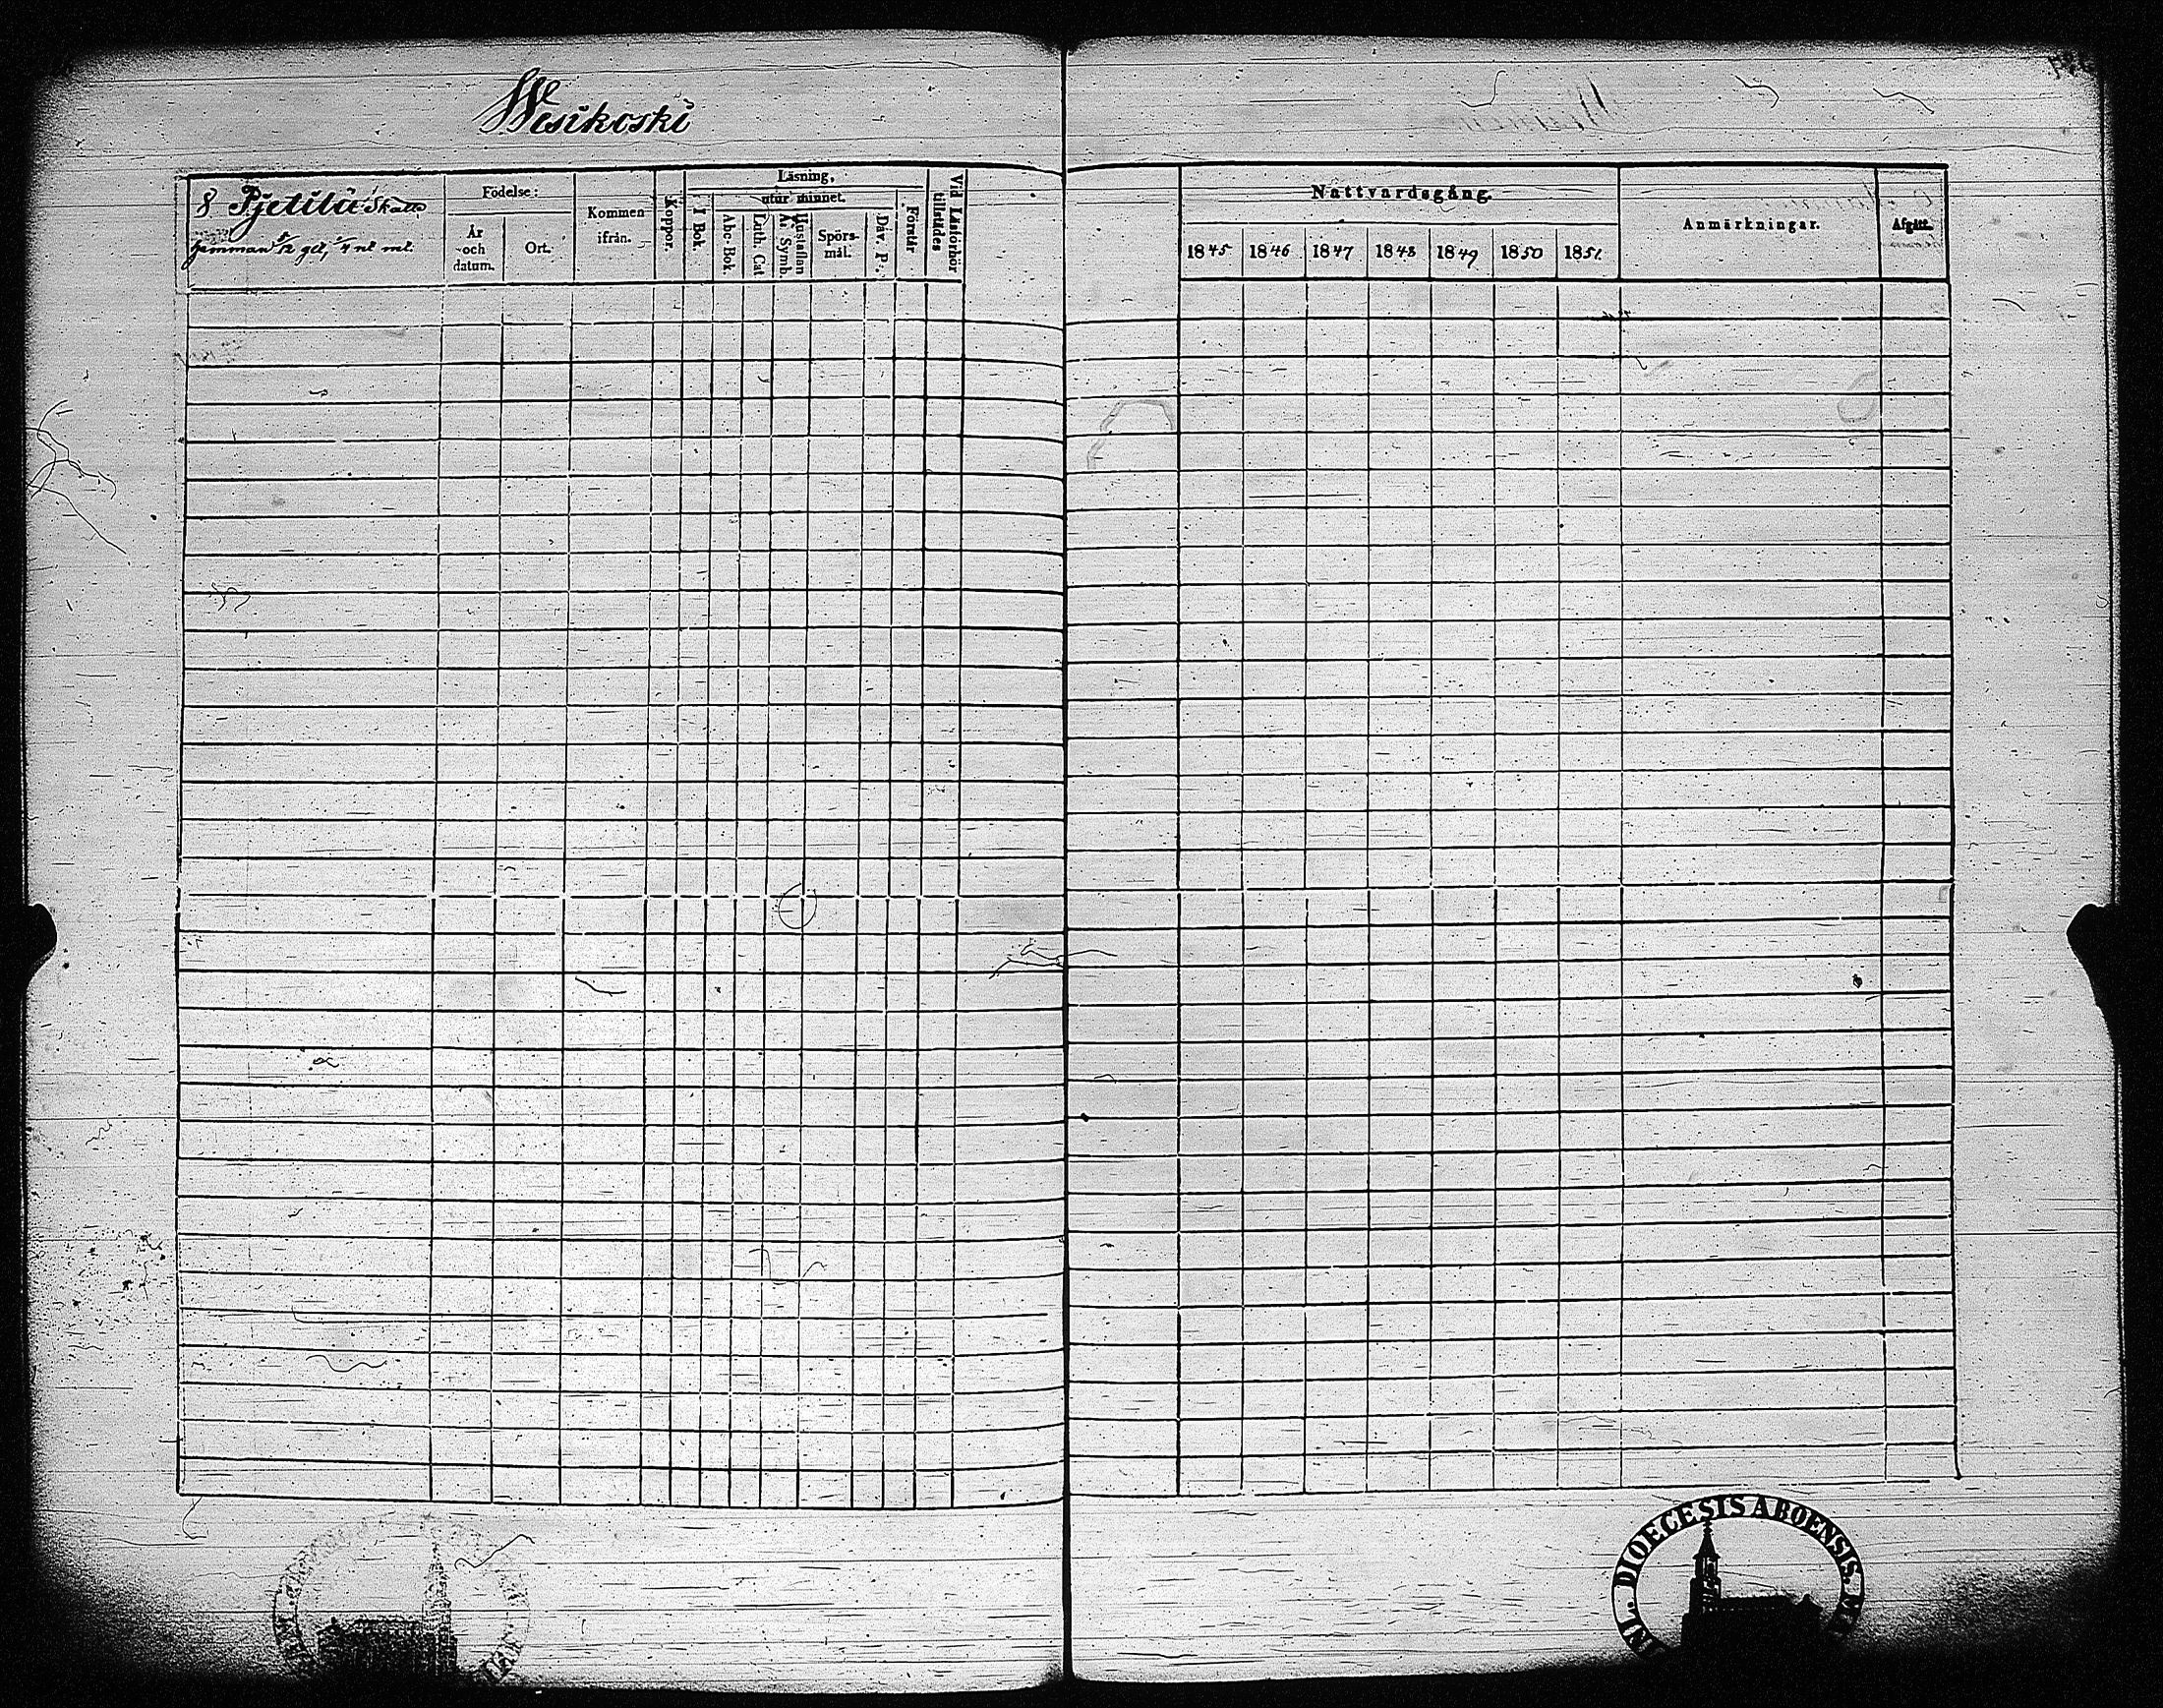 Wesikoski
8 Pjetilä Skatte
hemman 5/12 gl, 1/4 nt ml.
Födelse:
År och datum.
Ort.
Kommen ifrån.
Koppor.
Läsning,
I Bok.
utur minnet.
Abc-Bok
Luth. Cat
Hustaflan
At. Symb.
Spörsmål.
Dav. P:.
Förstår
Vid Läsförhör
tillstädes
Nattvardsgång.
1845 1846 1847 1848 1849 1850 1851.
Anmärkningar.
Afgått.
DIOECESIS ABOENSIS.